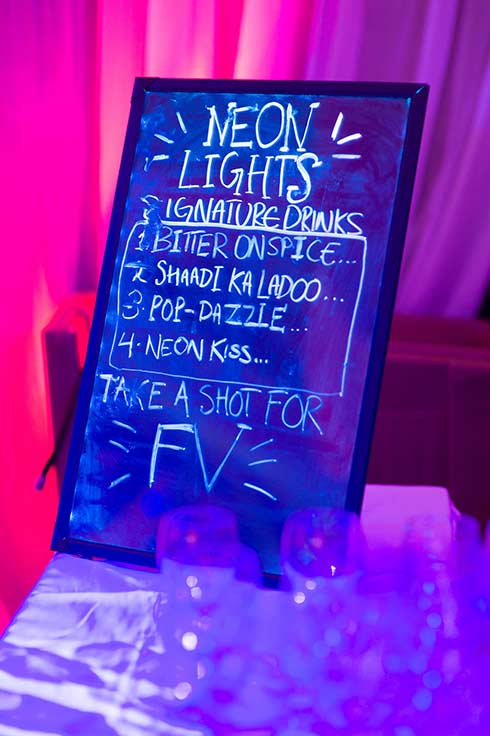 NEON
LIGHTS
SIGNATURE DRINKS
1. BITTER ONSPICE...
2. SHAADI KA LADOO...
3. POP-DAZZLE...
4. NEON KISS...
TAKE A SHOT FOR
FV